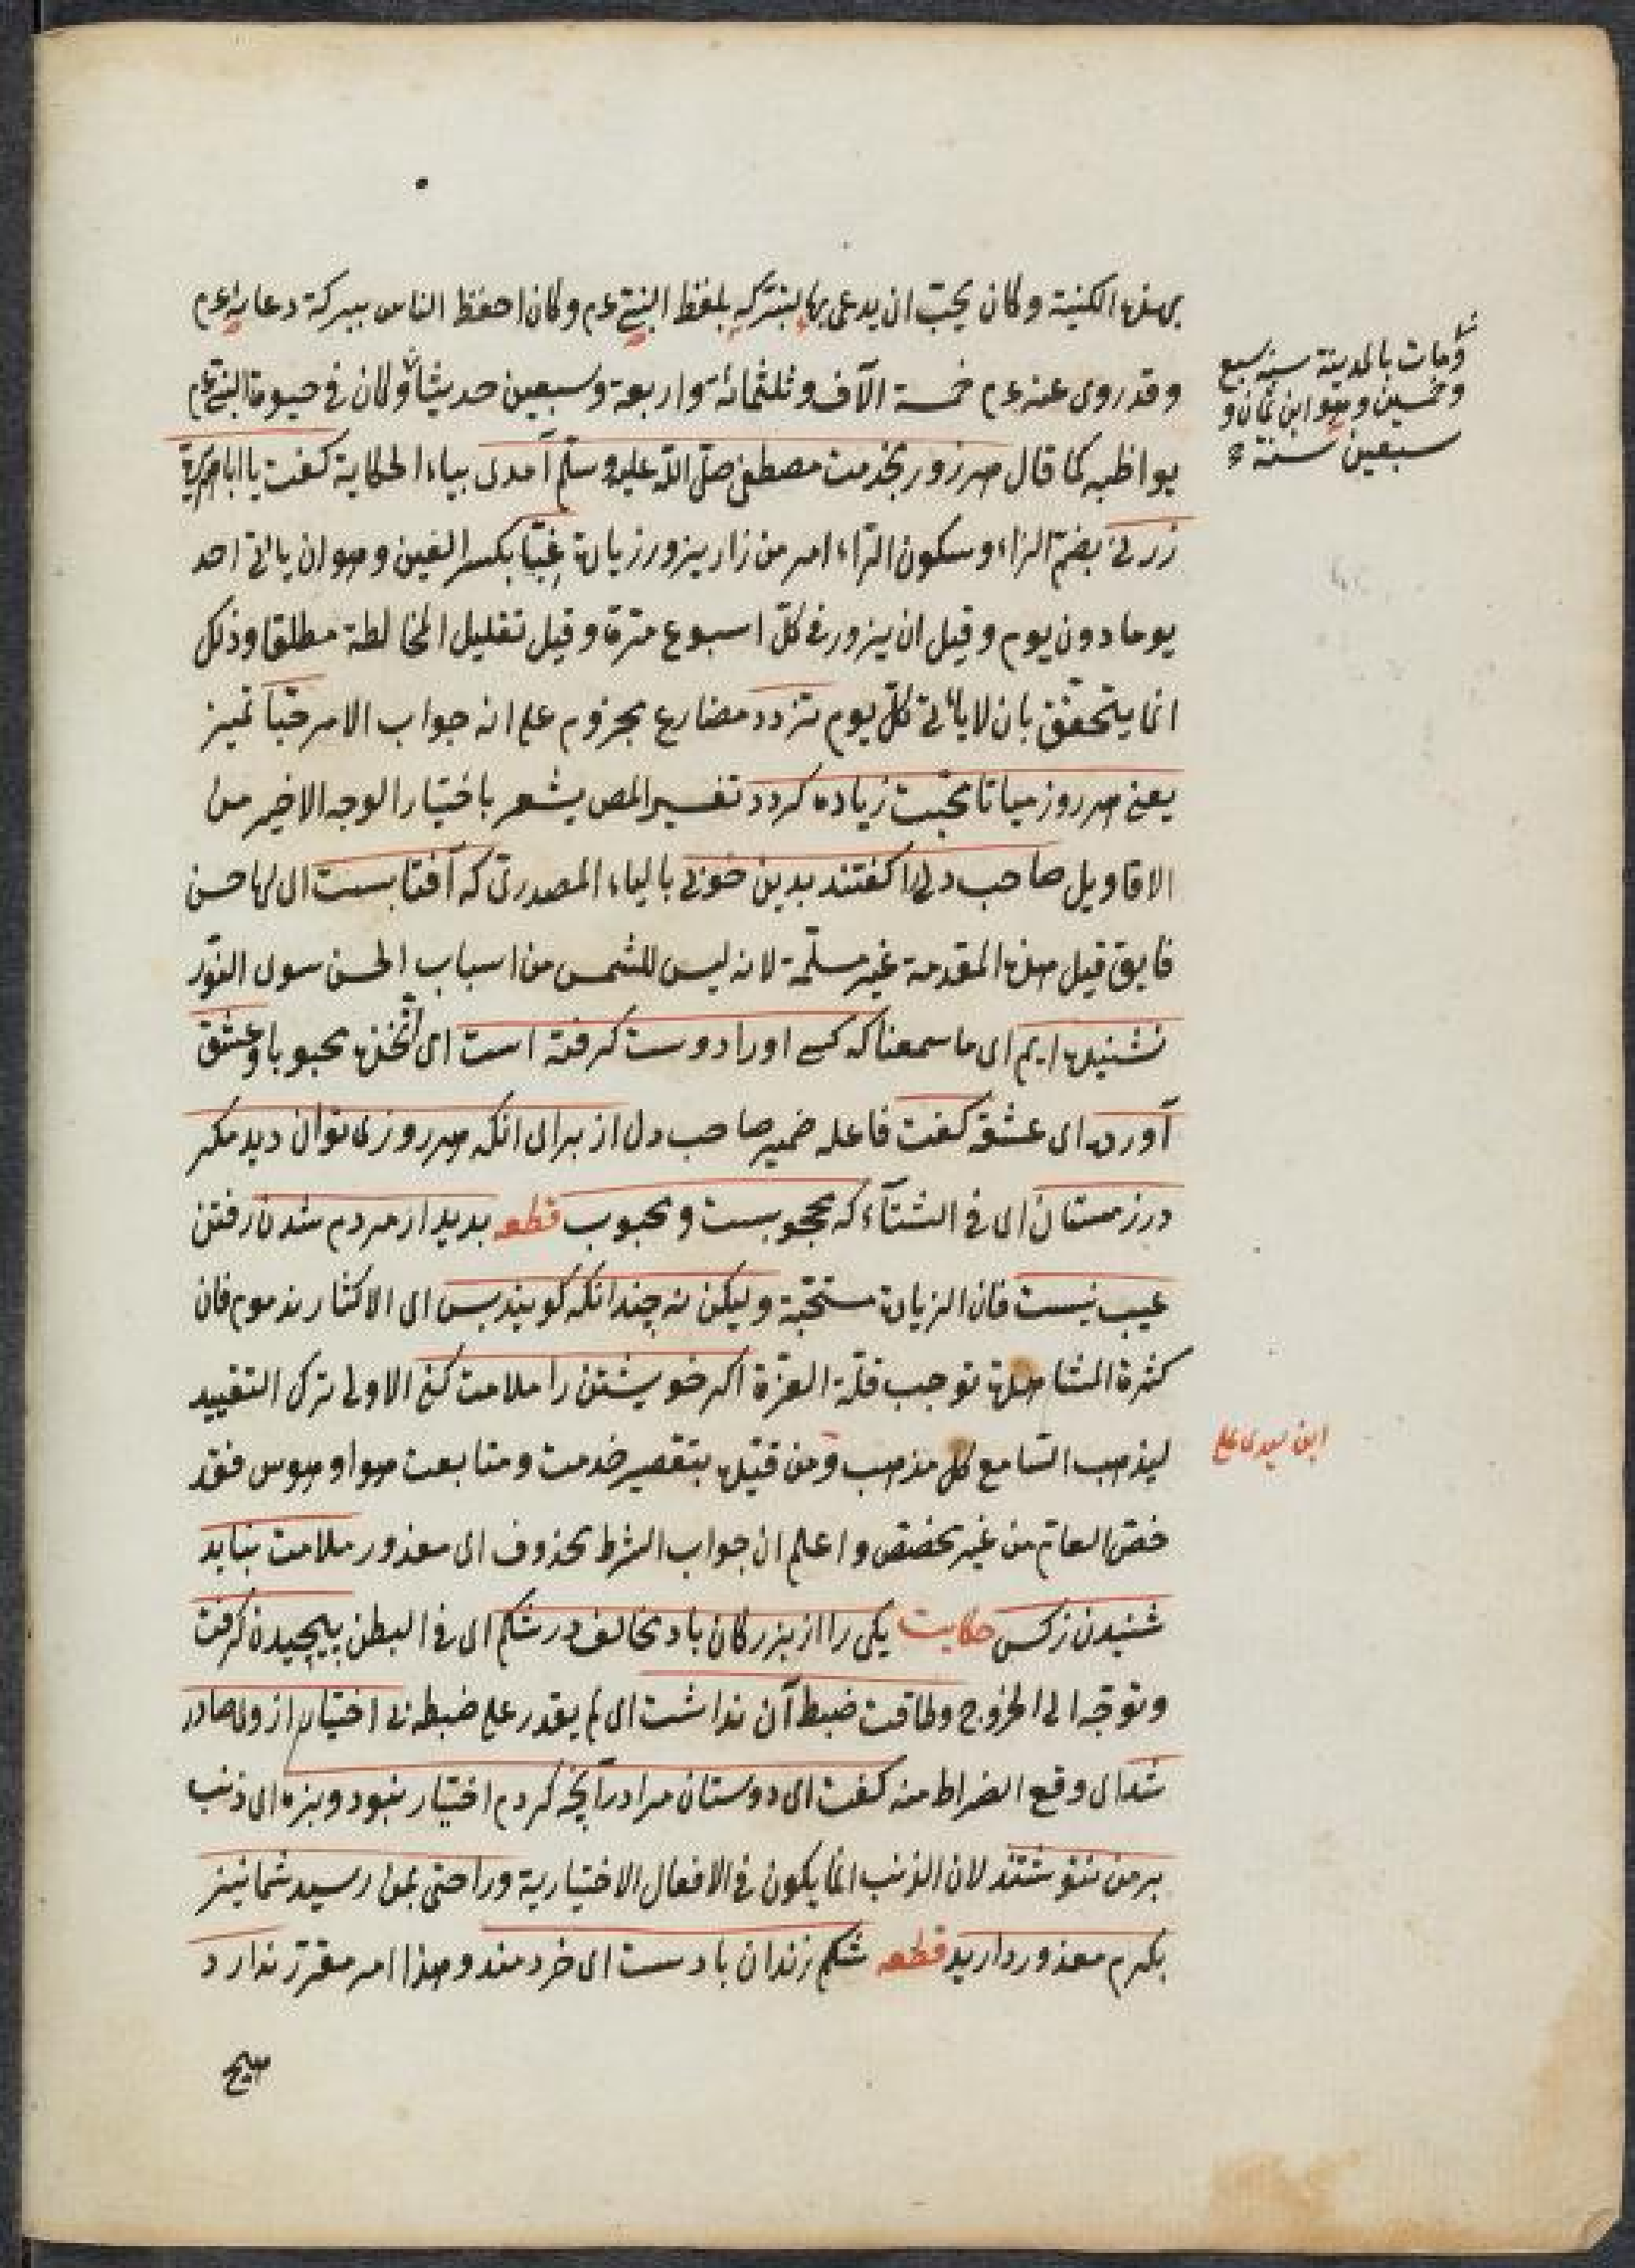 بهذه الكنية وكان يحب ان يدعى بها لتبركه بلفظ النبي عم وكان احفظ الناس ببركة دعائه عم
وقد روى عنه عم خمسة الآف وثلثمائة واربعة وسبعين حديثا وكان في حيوة النبي عم
يواظبه كما قال هر روز بخدمت مصطفى صلى الله عليه وسلم آمدى بياء الحكاية كفت يا ابا هريرة
زرنى بضم الزاء وسكون الراء امر من زار يزور زيارة غبا بكسر الغين وهو ان يأتى احد
يوما دون يوم وقيل ان يزور فى كل اسبوع مرة وقيل تقليل المخالطة مطلقا وذلك
انما يتحقق بان لا يأتى كل يوم تزدد مضارع مجزوم على انه جواب الامر حبا تميز
يعنى هر روز ميا تا محبت زياده كردد تفسير المص يشعر باختيار الوجه الاخير من
الاقاويل صاحب دلى را كفتند بدين خوبى بالياء المصدرى كه آفتابست اى لها حسن
فايق قيل هذه المقدمة غير مسلمة لانه ليس للشمس من اسباب الحسن سوى النور
نشنيده ايم اى ما سمعنا كه كسى اورا دوست كرفته است اى اتخذه محبوبا وعشق
آورده اى عشقه كفت فاعله ضمير صاحب دل از براى انكه هر روز مى توان ديد مكر
در زمستان اى فى الشتاء كه محجوبست ومحبوب قطعه بديدار مردم شدن رفتن
عيب نيست فان الزيارة مستحبة وليكن نه چندانكه كويند بس اى الاكثار مذموم فان
كثرة المشاهدة توجب قلة العزة اكر خويشتن را ملامت كنى الاولى ترك التقييد
ليذهب السامع كل مذهب ومن قيده بتقصير خدمت ومتابعت هوا وهوس فقد
خص العام من غير مخصص واعلم ان جواب الشرط محذوف اى معذور ملامت نبايد
شنيدن زكس حكايت يكى را از بزركان باد مخالف در شكم اى فى البطن پيچيدن كرفت
وتوجه الى الخروج وطاقت ضبط آن نداشت اى لم يقدر على ضبطه بى اختيار از وى صادر
شد اى وقع الضراط منه كفت اى دوستان مرا در آنچه كردم اختيار نبود وبزه اى ذنب
بر من ننوشتند لان الذنب انما يكون فى الافعال الاختيارية وراحتى بمن رسيد شما نيز
بكرم معذور داريد قطعه شكم زندان بادست اى خردمند وهذا امر مقرر ندارد
هيچ
ومات بالمدينة سنة سبع
وخمسين وهو ابن ثمان و
سبعين سنة
ابن سيدى على